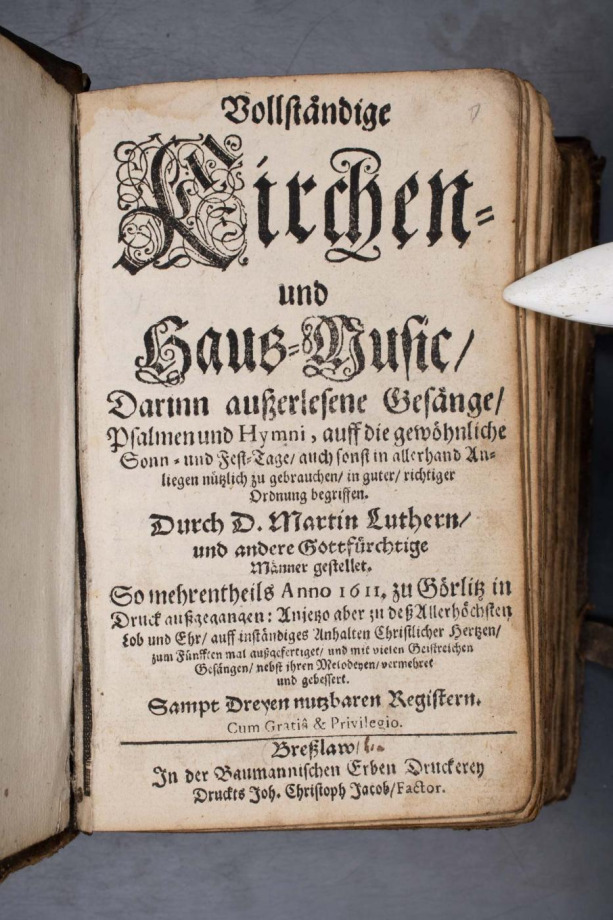 Vollständige
Kirchen-
und
Haus-Music/
Darinn außerlesene Gesänge/
Psalmen und Hymni, auff die gewöhnliche
Sonn- und Fest-Tage/ auch sonst in allerhand An-
liegen nützlich zu gebrauchen/ in guter/ richtiger
Ordnung begriffen.
Durch D. Martin Luthern/
und andere Gottfürchtige
Männer gestellet.
So mehrentheils Anno 1611. zu Görlitz in
Druck außgegangen: Anjetzo aber zu deß Allerhöchsten
Lob und Ehr/ auff inständiges Anhalten Christlicher Hertzen/
zum Fünfften mal außgefertiget/ und mit vielen Geistreichen
Gesängen/ nebst ihren Melodeyen/ vermehret
und gebessert.
Sampt Dreyen nutzbaren Registern.
Cum Gratiâ & Privilegio.
Breßlaw/
In der Baumannischen Erben Druckerey
Druckts Joh. Christoph Jacob/ Factor.